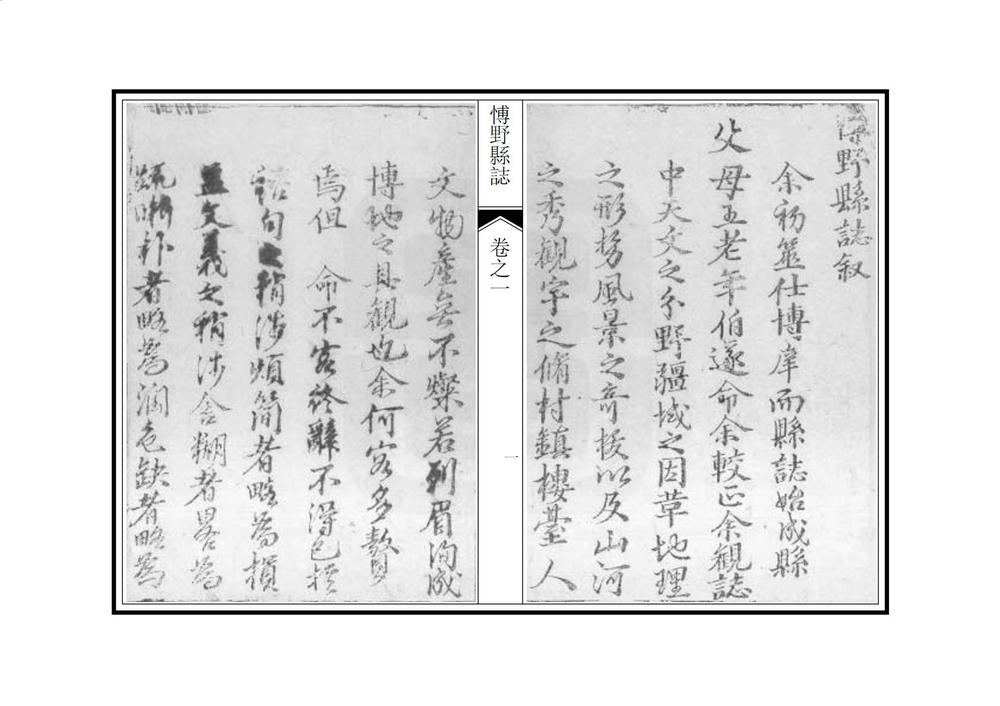 野縣誌叙
余初筮仕博庠而縣誌始成縣
父母五老年伯遂命余較正余觀誌
中天文之分野疆域之因革地理
之形勢風景之奇拔以及山河
之秀觀宇之脩村鎮樓臺人
博野縣誌
卷之一
一
文物產無不燦若列眉洵成
博地之具觀也余何容多贅
焉但 命不容終辭不得已於
句之稍涉煩簡者略為損
益文義之稍涉含糊者畧為
疏 者略為潤色缺者略為